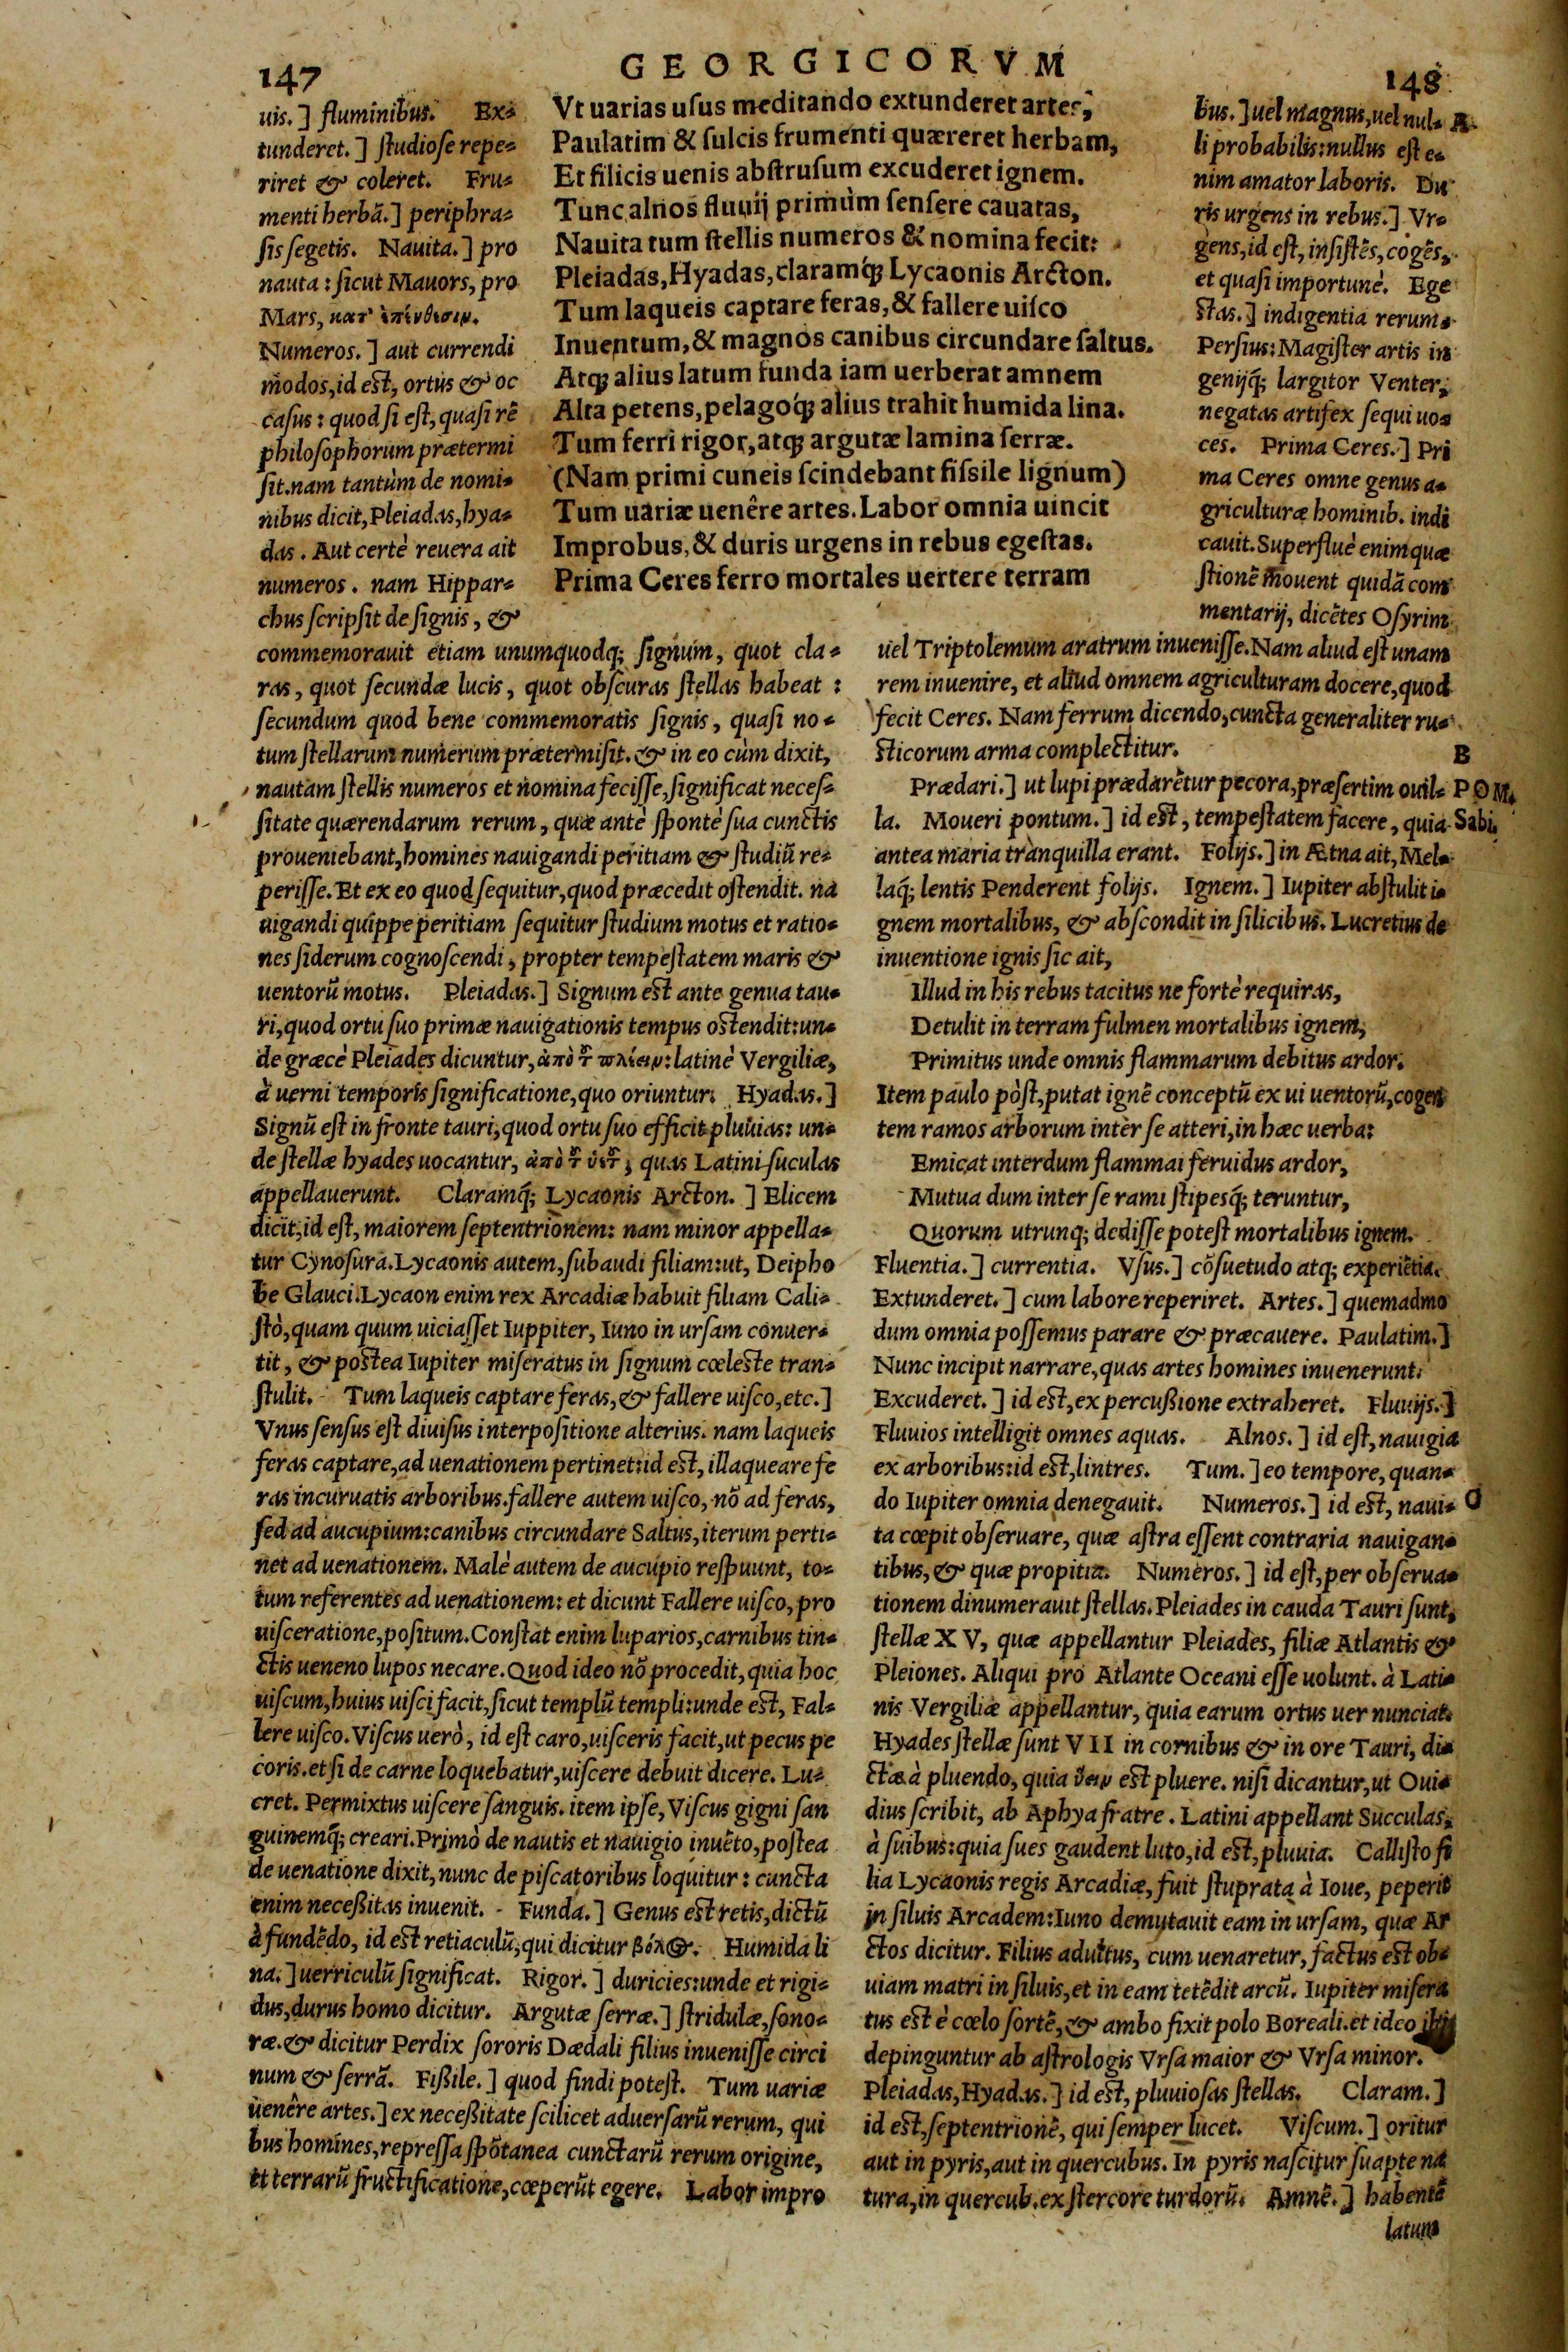 147
GEORGICORVM
148
Vt uarias usus meditando extunderet artes,
Paulatim & sulcis frumenti quæreret herbam,
Et silicis uenis abstrusum excuderet ignem.
Tunc alnos fluuij primùm sensere cauatas,
Nauita tum stellis numeros & nomina fecit:
Pleiadas, Hyadas, claramq́; Lycaonis Arcton.
Tum laqueis captare feras, & fallere uisco
Inuentum, & magnos canibus circundare saltus.
Atq; alius latum funda iam uerberat amnem
Alta petens, pelagoq́; alius trahit humida lina.
Tum ferri rigor, atq; argutæ lamina serræ.
(Nam primi cuneis scindebant fissile lignum)
Tum uariæ uenêre artes. Labor omnia uincit
Improbus, & duris urgens in rebus egestas.
Prima Ceres ferro mortales uertere terram
uis.] fluminibus. Ex-
tunderet.] studiose repe-
riret & coleret. Fru-
menti herbã.] periphra-
sis segetis. Nauita.] pro
nauta: sicut Mauors, pro
Mars, κατ' ἐπένθεσιν.
Numeros.] aut currendi
modos, id est, ortus & oc
casus: quod si est, quasi rẽ
philosophorum prætermi
sit. nam tantùm de nomi-
nibus dicit, Pleiadas, hya-
das. Aut certè reuera ait
numeros. nam Hippar-
chus scripsit de signis, &
commemorauit etiam unumquodq; signum, quot cla-
ras, quot secundæ lucis, quot obscuras stellas habeat:
secundum quod bene commemoratis signis, quasi no-
tum stellarum numerum prætermisit. & in eo cùm dixit,
nautam stellis numeros et nomina fecisse, significat neces-
sitate quærendarum rerum, quæ antè spontè sua cunctis
proueniebant, homines nauigandi peritiam & studiũ re-
perisse. Et ex eo quod sequitur, quod præcedit ostendit. na
uigandi quippe peritiam sequitur studium motus et ratio-
nes siderum cognoscendi, propter tempestatem maris &
uentorũ motus. Pleiadas.] Signum est ante genua tau-
ri, quod ortu suo primæ nauigationis tempus ostendit: un-
de græcè Pleiades dicuntur, ἀπὸ τ πλέειν: latinè Vergiliæ,
à uerni temporis significatione, quo oriuntur. Hyadas.]
Signũ est in fronte tauri, quod ortu suo efficit pluuias: un-
de stellæ hyades uocantur, ἀπὸ quas Latini suculas
appellauerunt. Claramq́; Lycaonis Arcton.] Elicem
dicit, id est, maiorem septentrionem: nam minor appella-
tur Cynosura. Lycaonis autem, subaudi filiam: ut, Deipho
be Glauci. Lycaon enim rex Arcadiæ habuit filiam Cali-
stò, quam quum uiciasset Iuppiter, Iuno in ursam conuer-
tit, & postea Iupiter miseratus in signum cœleste tran-
stulit. Tum laqueis captare feras, & fallere uisco, etc.]
Vnus sensus est diuisus interpositione alterius. nam laqueis
feras captare, ad uenationem pertinet: id est, illaqueare fe
ras incuruatis arboribus. fallere autem uisco, nõ ad feras,
sed ad aucupium: canibus circundare Saltus, iterum perti-
net ad uenationem. Malè autem de aucupio respuunt, to-
tum referentes ad uenationem: et dicunt Fallere uisco, pro
uisceratione, positum. Constat enim luparios, carnibus tin-
ctis ueneno lupos necare. Quod ideo nõ procedit, quia hoc
uiscum, huius uisci facit, sicut templũ templi: unde est, Fal-
lere uisco. Viscus uerò, id est caro, uisceris facit, ut pecus pe
coris. et si de carne loquebatur, uiscere debuit dicere. Lu-
cret. Permixtus uiscere sanguis. item ipse, Viscus gigni san
guinemq́; creari. Primò de nautis et nauigio inuẽto, postea
de uenatione dixit, nunc de piscatoribus loquitur: cuncta
enim necessitas inuenit. Funda.] Genus est retis, dictũ
à fundẽdo, id est retiaculũ, qui dicitur βόλος. Humida li
na.] uerriculũ significat. Rigor.] duricies: unde et rigi-
dus, durus homo dicitur. Argutæ serræ.] stridulæ, sono-
ræ. & dicitur Perdix sororis Dædali filius inuenisse circi
num & serrã. Fissile.] quod findi potest. Tum uariæ
uenêre artes.] ex necessitate scilicet aduersarũ rerum, qui
bus homines, repressa spõtanea cunctarũ rerum origine,
et terrarũ fructificatione, cœperũt egere. Labor impro
bus.] uel magnus, uel nul- A
li probabilis: nullus est e-
nim amator laboris. Du
ris urgens in rebus.] Vr-
gens, id est, insistẽs, cogẽs,
et quasi importunè. Ege
stas.] indigentia rerum.
Persius: Magister artis in
genijq́; largitor Venter,
negatas artifex sequi uo-
ces. Prima Ceres.] Pri
ma Ceres omne genus a-
griculturæ hominib. indi
cauit. Superfluè enim quæ
stionẽ mouent quidã com
mentarij, dicẽtes Osyrim
uel Triptolemum aratrum inuenisse. Nam aliud est unam
rem inuenire, et aliud omnem agriculturam docere, quod
fecit Ceres. Nam ferrum dicendo, cuncta generaliter ru-
sticorum arma complectitur.
B
Prædari.] ut lupi prædarẽtur pecora, præsertim ouil- POM.
la. Moueri pontum.] id est, tempestatem facere, quia Sabi.
antea maria tranquilla erant. Folijs.] in Ætna ait, Mel-
laq́; lentis Penderent folijs. Ignem.] Iupiter abstulit i-
gnem mortalibus, & abscondit in silicibus. Lucretius de
inuentione ignis sic ait,
Illud in his rebus tacitus ne fortè requiras,
Detulit in terram fulmen mortalibus ignem,
Primitus unde omnis flammarum debitus ardor.
Item paulo pòst, putat ignẽ conceptũ ex ui uentorũ, cogen
tem ramos arborum inter se atteri, in hæc uerba:
Emicat interdum flammai feruidus ardor,
Mutua dum inter se rami stipesq́; teruntur,
Quorum utrunq; dedisse potest mortalibus ignem.
Fluentia.] currentia. Vsus.] cõsuetudo atq; experiẽtia.
Extunderet.] cum labore reperiret. Artes.] quemadmo
dum omnia possemus parare & præcauere. Paulatim.]
Nunc incipit narrare, quas artes homines inuenerunt.
Excuderet.] id est, ex percussione extraheret. Fluuijs.]
Fluuios intelligit omnes aquas. Alnos.] id est, nauigia
ex arboribus: id est, lintres. Tum.] eo tempore, quan-
do Iupiter omnia denegauit. Numeros.] id est, naui- C
ta cœpit obseruare, quæ astra essent contraria nauigan-
tibus, & quæ propitia. Numeros.] id est, per obserua-
tionem dinumerauit stellas. Pleiades in cauda Tauri sunt,
stellæ XV, quæ appellantur Pleiades, filiæ Atlantis &
Pleiones. Aliqui pro Atlante Oceani esse uolunt. à Lati-
nis Vergiliæ appellantur, quia earum ortus uer nunciat.
Hyades stellæ sunt VII in cornibus & in ore Tauri, di-
ctæ à pluendo, quia ὕειν est pluere. nisi dicantur, ut Oui-
dius scribit, ab Aphya fratre. Latini appellant Succulas,
à suibus: quia sues gaudent luto, id est, pluuia. Callisto fi
lia Lycaonis regis Arcadiæ, fuit stuprata à Ioue, peperit
in siluis Arcadem: Iuno demutauit eam in ursam, quæ Ar
ctos dicitur. Filius adultus, cum uenaretur, factus est ob-
uiam matri in siluis, et in eam tetẽdit arcũ. Iupiter misera
tus est è cœlo sortẽ, & ambo fixit polo Boreali. et ideo ibi
depinguntur ab astrologis Vrsa maior & Vrsa minor.
Pleiadas, Hyadas.] id est, pluuiosas stellas. Claram.]
id est, septentrionẽ, qui semper lucet. Viscum.] oritur
aut in pyris, aut in quercubus. In pyris nascitur suapte na
tura, in quercub. ex stercore turdorũ. Amnẽ.] habentẽ
latum